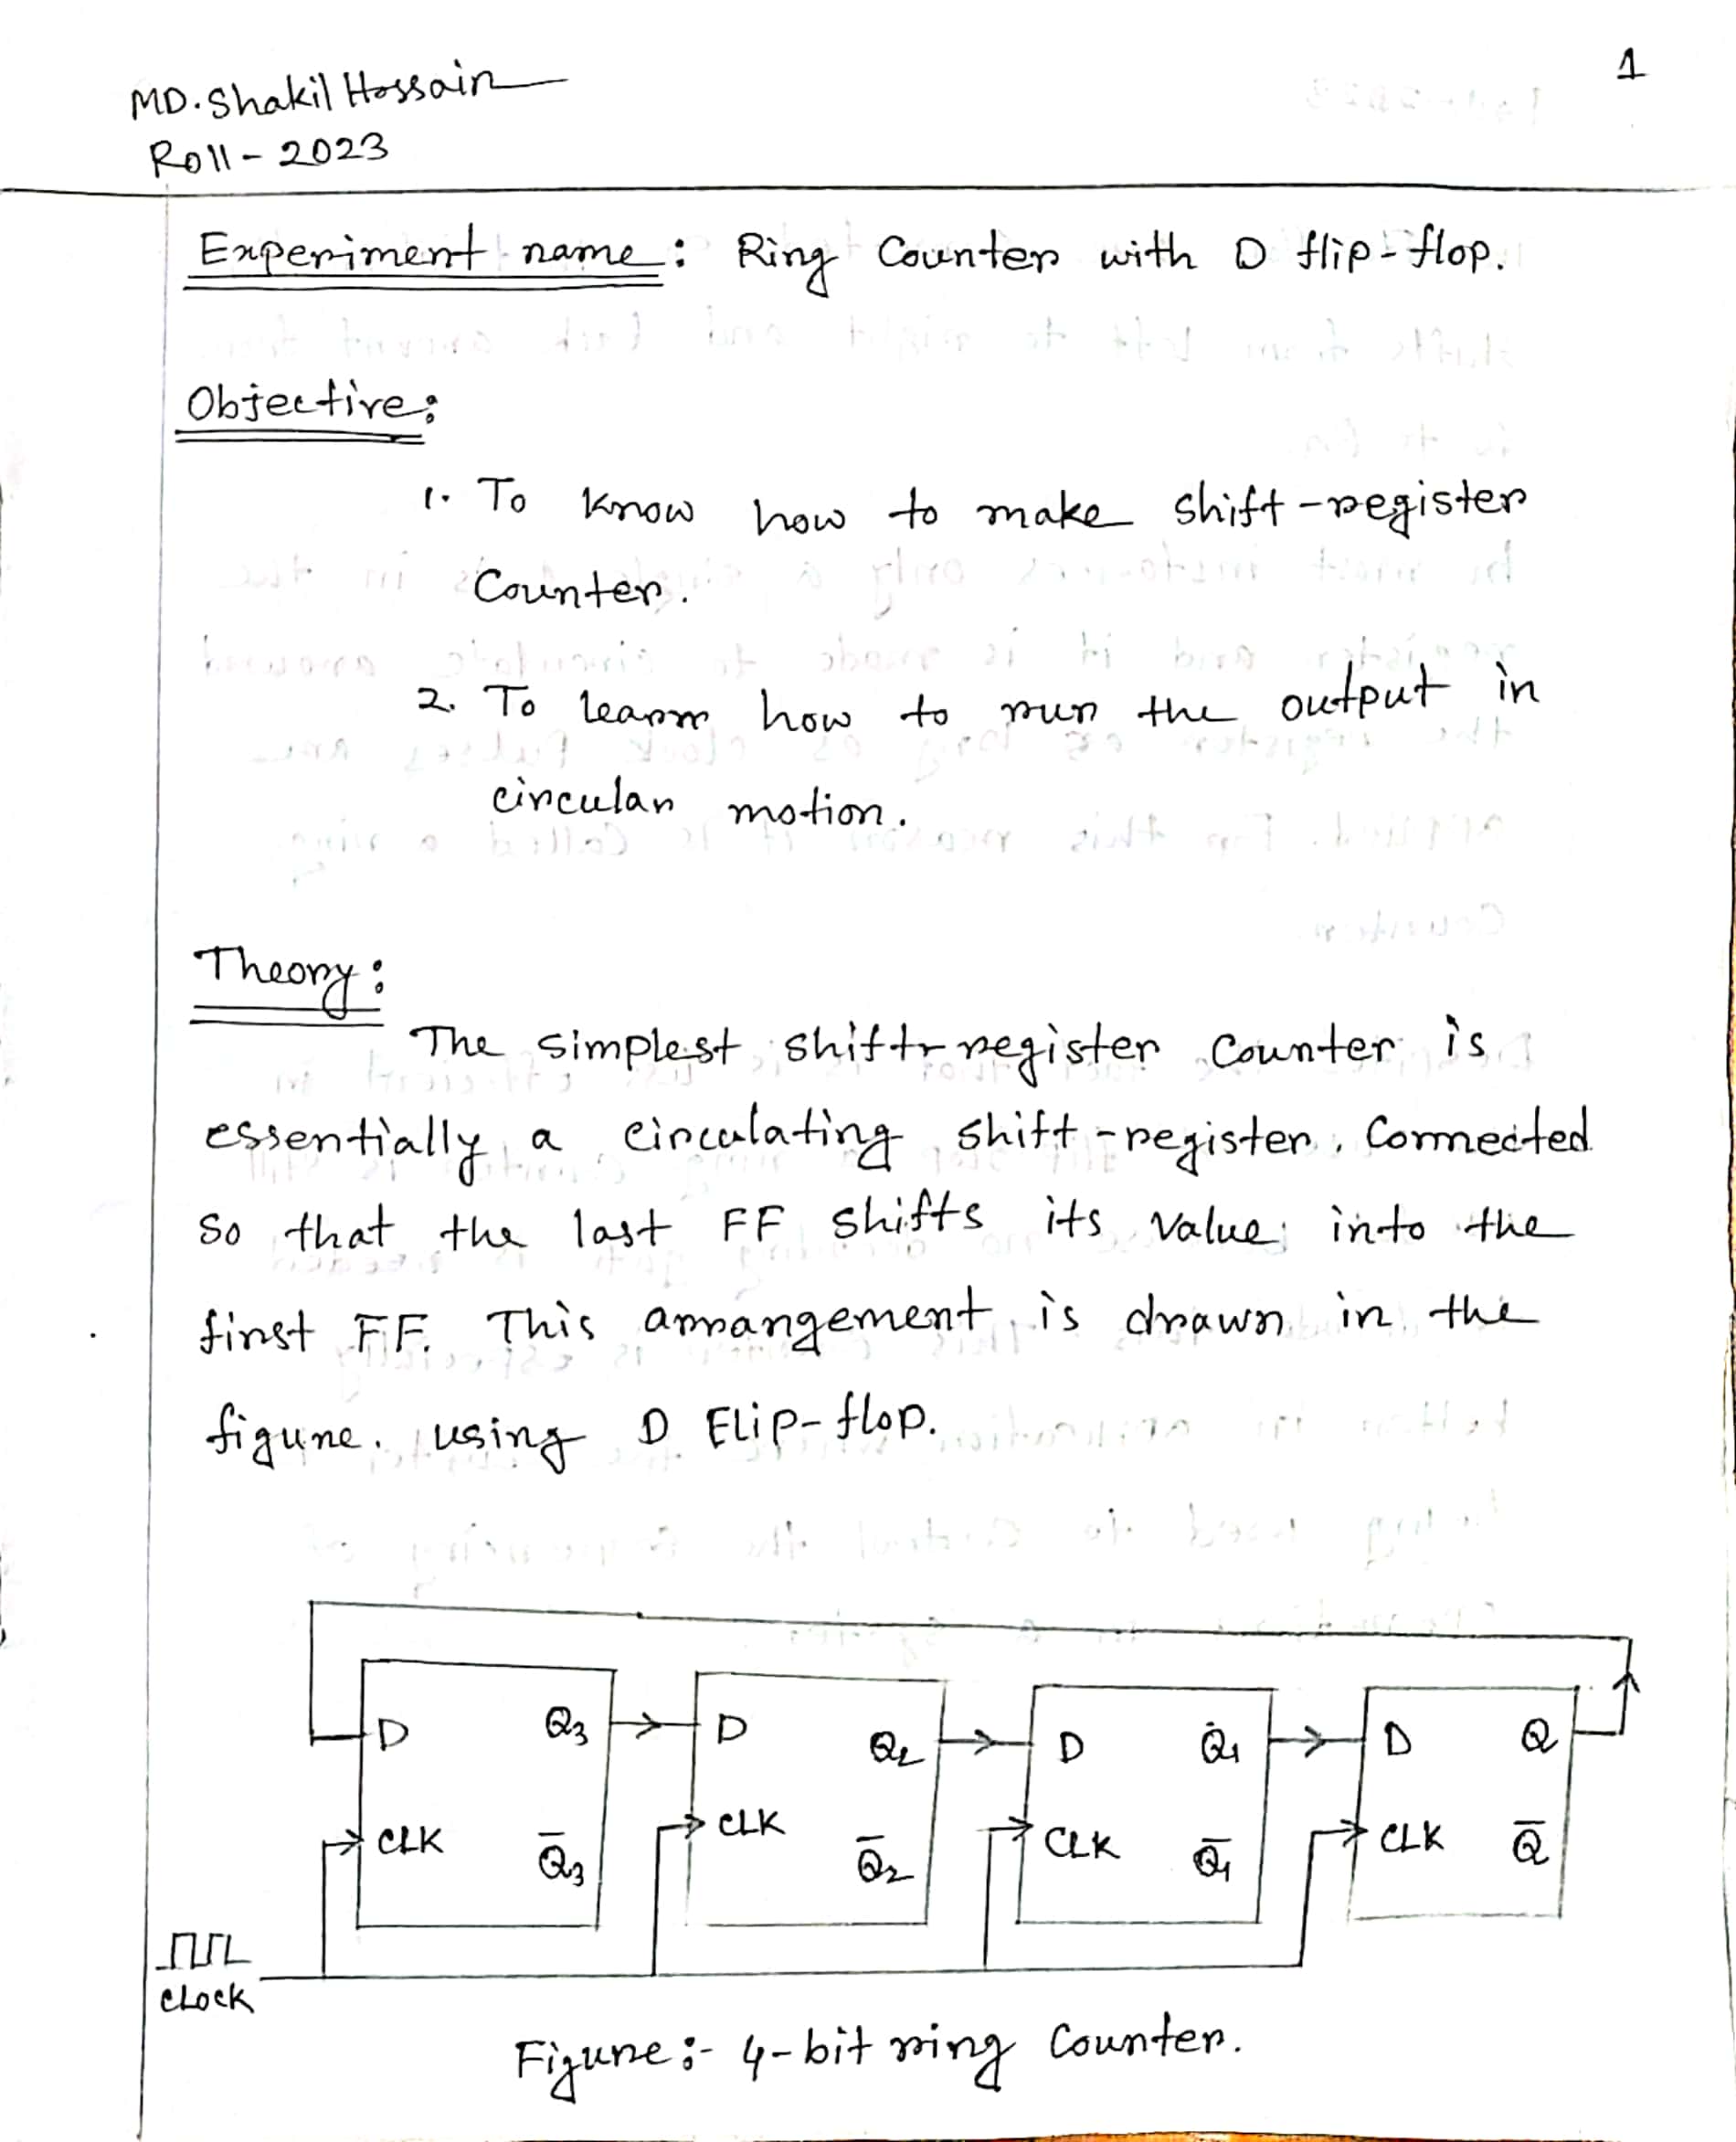 1
MD. Shakil Hossain
Roll - 2023
Experiment name: Ring Counter with D flip-flop.
Objective:
1. To know how to make shift-register
Counter.
2. To learn how to run the output in
circular motion.
Theory:
The simplest shift-register counter is
essentially a circulating shift-register. Connected
so that the last FF shifts its value into the
first FF. This arrangement is drawn in the
figure. using D Flip-flop.
D Q3 D Q2 D Q1 D Q
CLK Q̅3 CLK Q̅2 CLK Q̅1 CLK Q̅
CLOCK
Figure:- 4-bit ring Counter.